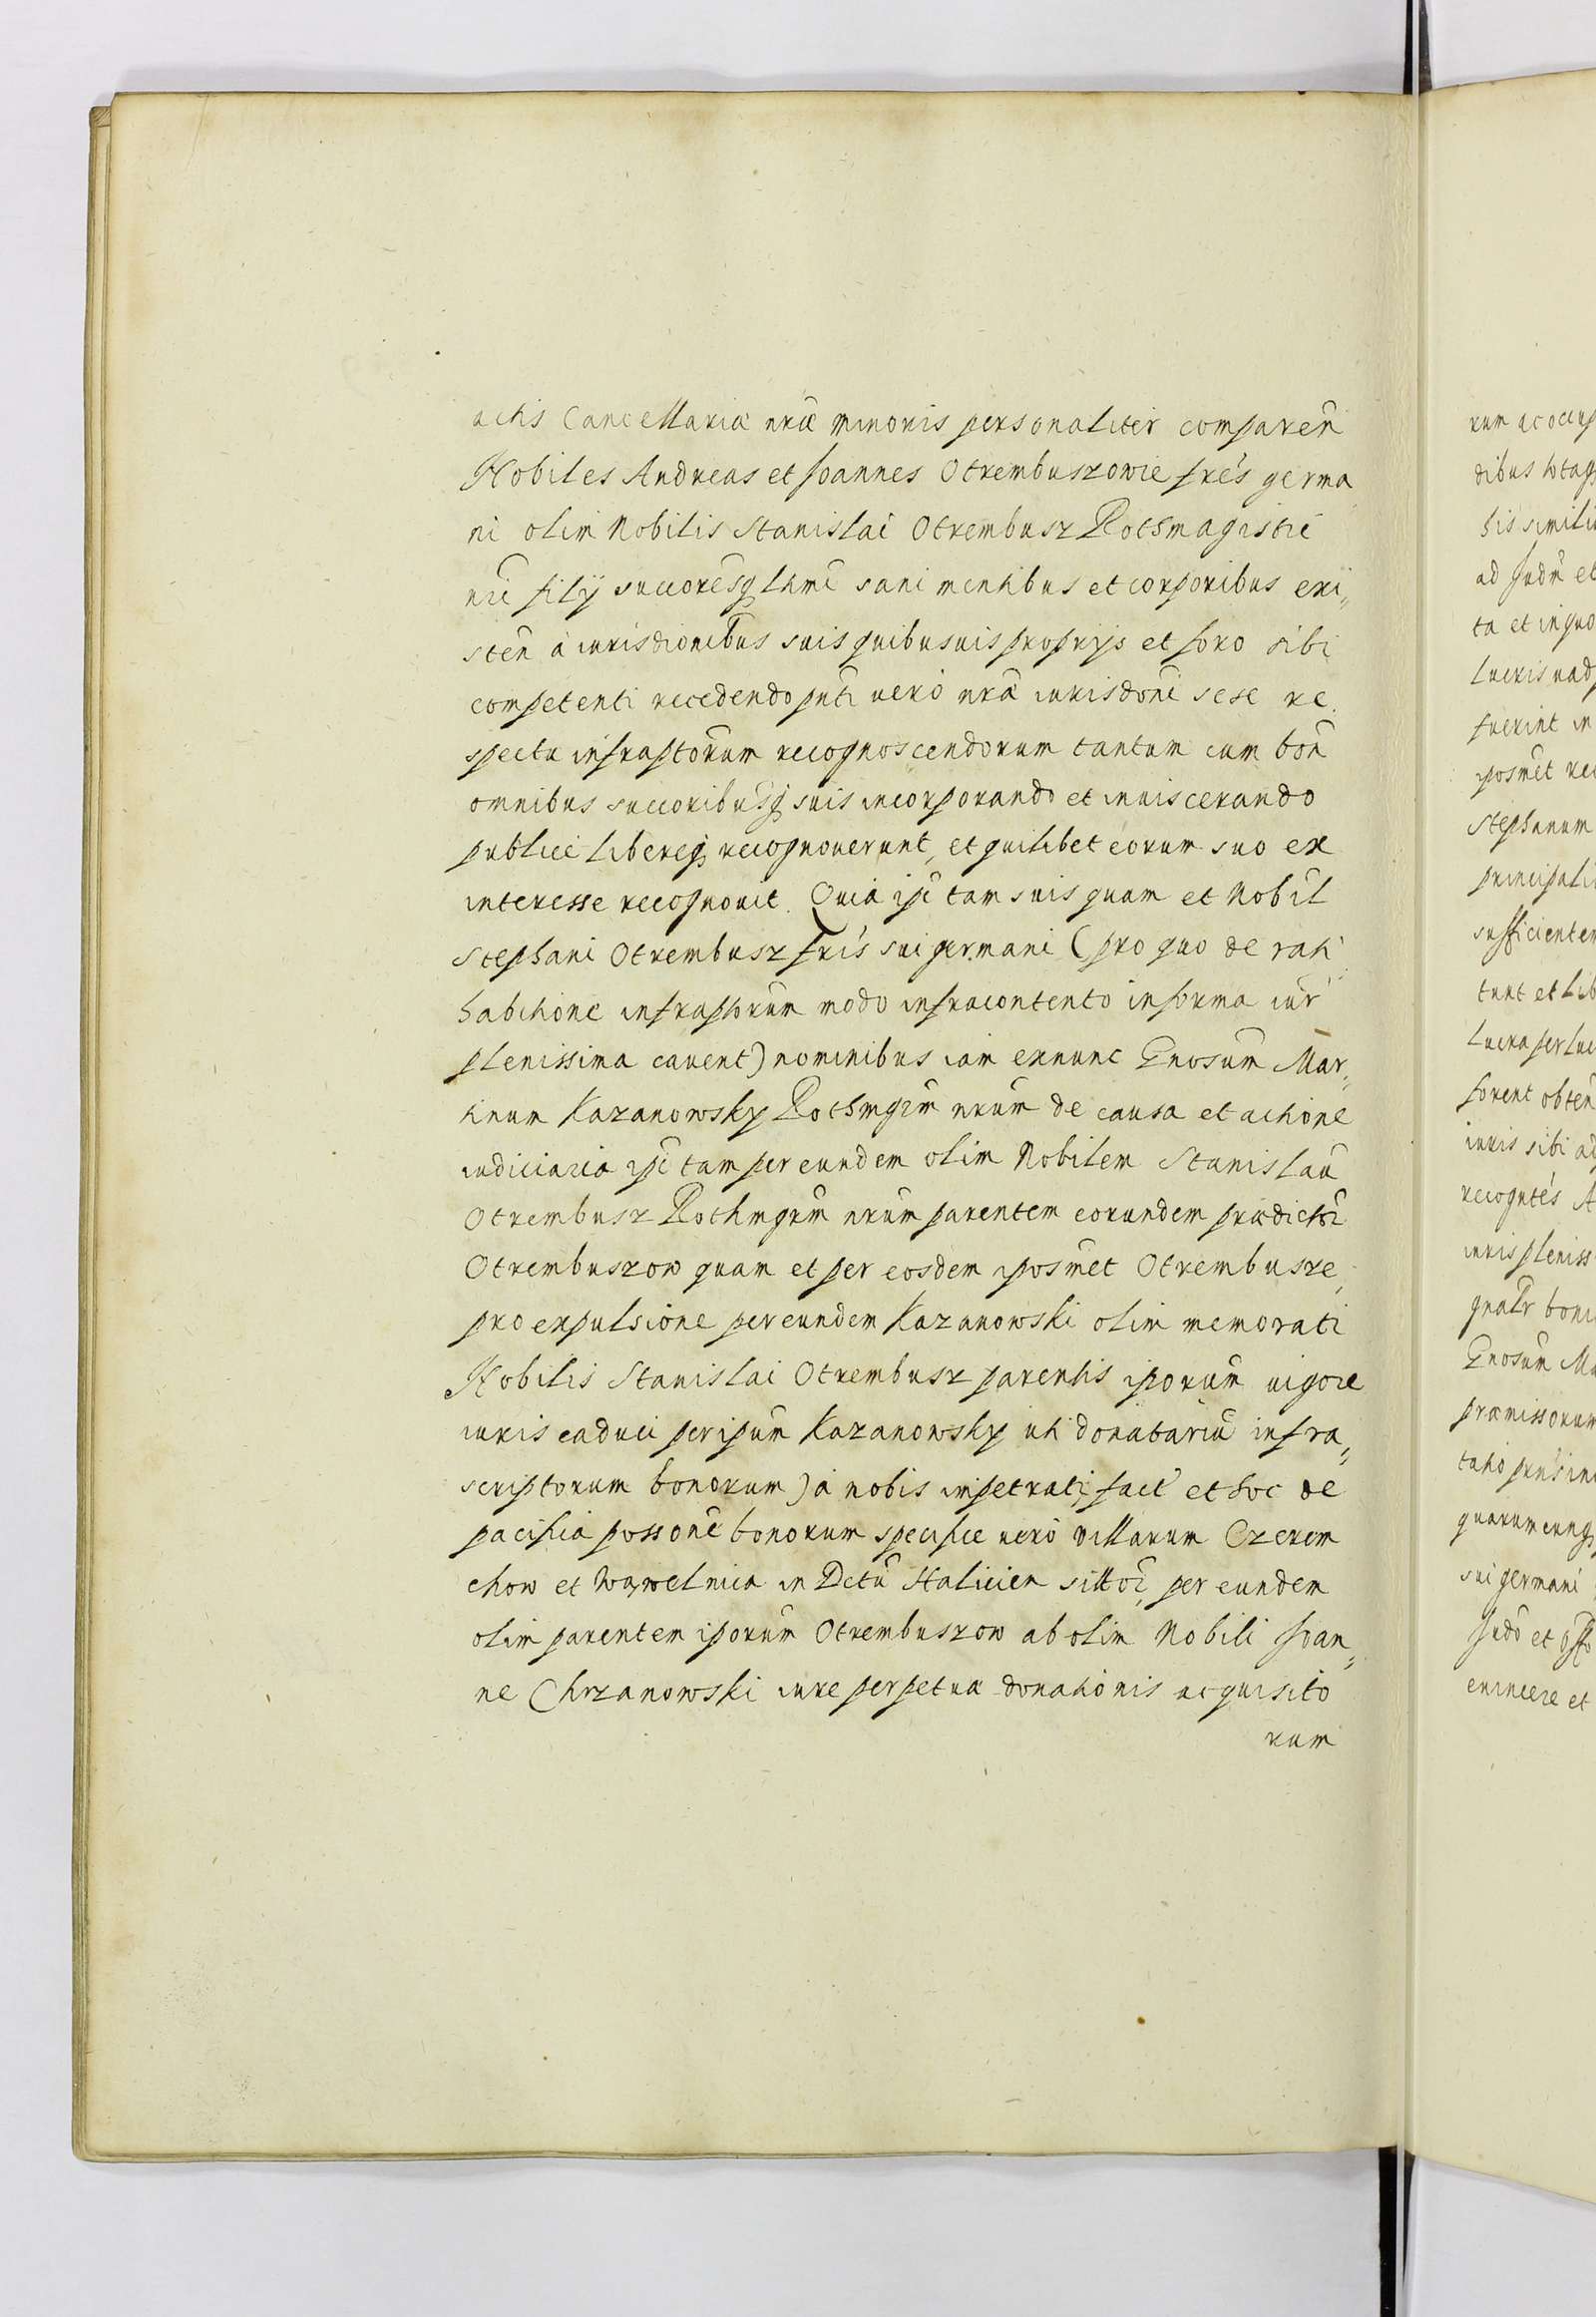 actis Cancellariæ nræ minoris personaliter comparen̄
Nobiles Andreas et Joannes Otrembuszowie frēs germa
ni olim Nobilis Stanislai Otrembusz Rothmagistri
nri̅ filij succoresq̨ lhmi̅ sani mentibus et corporibus exi„
sten̄ à iurisdionibus suis quibusuis proprijs et foro sibi
competenti recedendo pnti̅ uerò nræ iurisdoni̅ sese re
spectu infraptorum recognoscendorum tantum cum bon̄
omnibus succoribusq̨ suis incorporando et inuiscerando
publice libereq̨ recognouerunt, et quilibet eorum suo ex
interesse recognouit. Quia ipi̅ tam suis quam et Nobil
Stephani Otrembusz fris̅ sui germani (pro quo de rati
habitione infraptorum modo infracontento in forma iur
plenissima cauent) nominibus iam exnunc Gnosum̅ Mar„
tinum Kazanowsky Rothmgrm̅ nrum̅ de causa et actione
iudiciaria ipi̅ tam per eundem olim Nobilem Stanislau̅
Otrembusz Rothmgrm̅ nrum̅ parentem eorundem prædictor̅
Otrembuszow quam et per eosdem ipos̅met Otrembusze,
pro expulsione per eundem Kazanowski olim memorati
Nobilis Stanislai Otrembusz parentis iporum̅ uigore
iuris caduci per ipum̅ Kazanowsky uti donatariu̅ infra„
scriptorum bonorum) à nobis impetrati, fact̅ et hoc de
pacifica possone̅ bonorum specifice uerò uillarum Czerem
chow et Wawelnica in Dctu̅ Halicien sittor̅, per eundem
olim parentem iporum̅ Otrembuszow ab olim Nobili Joan„
ne Chrzanowski iure perpetuæ donationis acquisito
rum